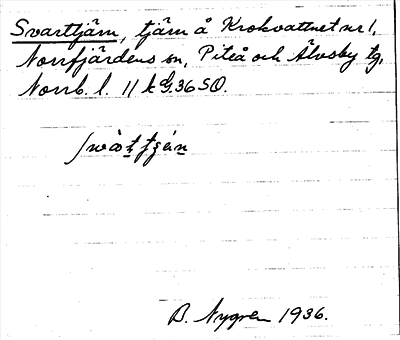 Svarttjärn, tjärn å Krokvattnet nr 1,
Norrfjärdens sn, Piteå och Älvsby tg,
Norrb. l.
B. Nygren 1936.